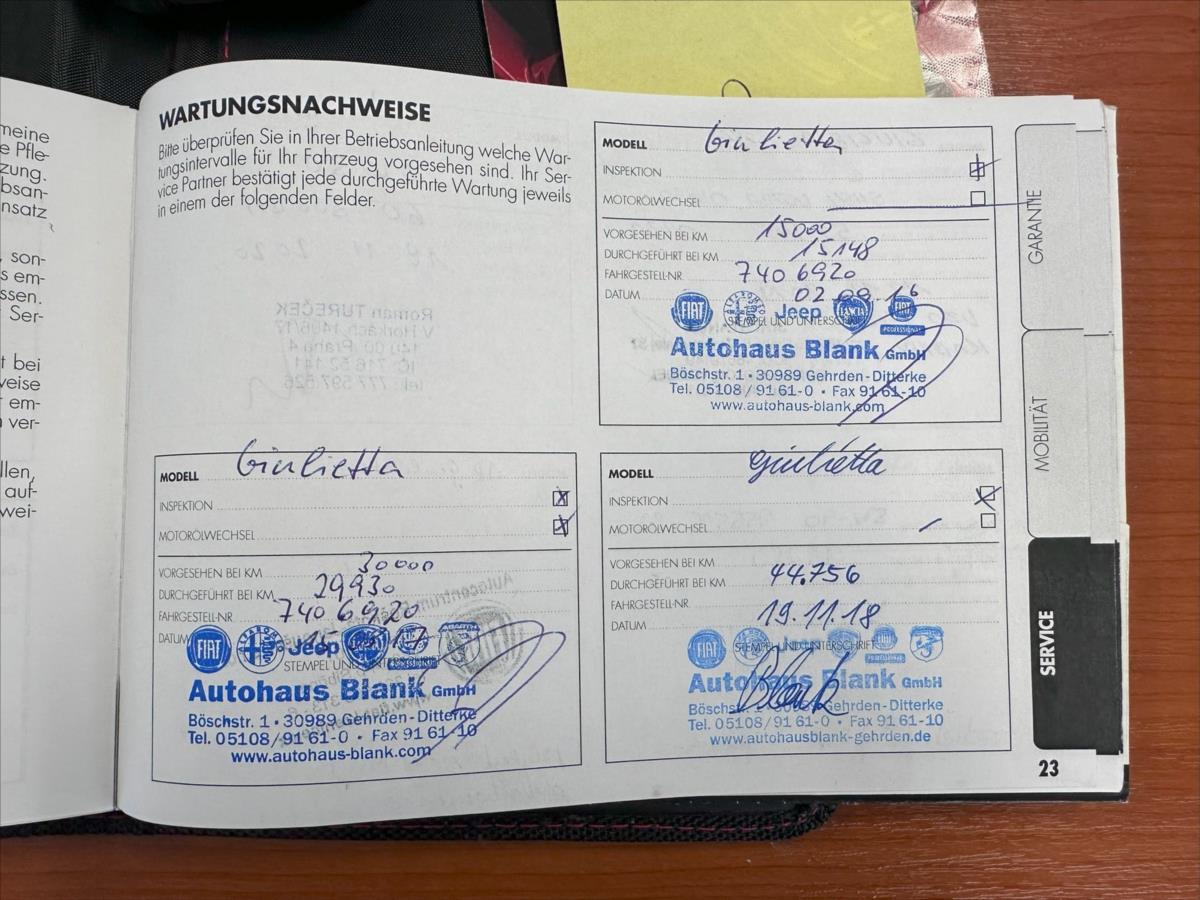 meine
e Pfle-
zung.
bsan-
nsatz
son-
s em-
ssen.
Ser-
t bei
weise
r em-
n ver-
llen,
auf-
wei-
WARTUNGSNACHWEISE
Bitte überprüfen Sie in Ihrer Betriebsanleitung welche War-
tungsintervalle für Ihr Fahrzeug vorgesehen sind. Ihr Ser-
vice Partner bestätigt jede durchgeführte Wartung jeweils
in einem der folgenden Felder.
MODELL Giulietta
INSPEKTION
MOTORÖLWECHSEL
VORGESEHEN BEI KM 15000
DURCHGEFÜHRT BEI KM 15148
FAHRGESTELL-NR. 7406920
DATUM 02.09.16
FIAT Jeep LANCIA FIAT PROFESSIONAL
STEMPEL UND UNTERSCHRIFT
Autohaus Blank GmbH
Böschstr. 1 · 30989 Gehrden-Ditterke
Tel. 05108 / 91 61-0 · Fax 91 61-10
www.autohaus-blank.com
MODELL Giulietta
INSPEKTION
MOTORÖLWECHSEL
VORGESEHEN BEI KM 30000
DURCHGEFÜHRT BEI KM 29930
FAHRGESTELL-NR. 7406920
DATUM 15 17
FIAT Jeep PROFESSIONAL ABARTH
STEMPEL UND
Autohaus Blank GmbH
Böschstr. 1 · 30989 Gehrden-Ditterke
Tel. 05108 / 91 61-0 · Fax 91 61-10
www.autohaus-blank.com
MODELL Giulietta
INSPEKTION
MOTORÖLWECHSEL
VORGESEHEN BEI KM
DURCHGEFÜHRT BEI KM 44.756
FAHRGESTELL-NR.
DATUM 19.11.18
FIAT Jeep PROFESSIONAL
STEMPEL UND UNTERSCHRIFT
Autohaus Blank GmbH
Blank
Böschstr. 1 · 30989 Gehrden-Ditterke
Tel. 05108 / 91 61-0 · Fax 91 61-10
www.autohausblank-gehrden.de
GARANTIE
MOBILITÄT
SERVICE
23